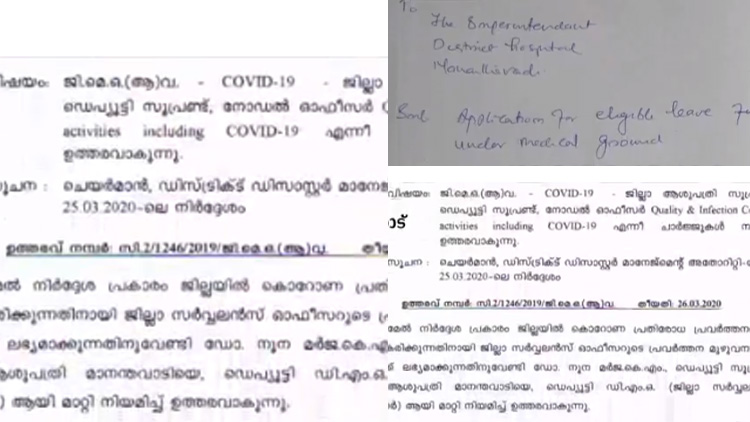 വിഷയം: ജി.മെ.ഒ.(ആ)വ. - COVID-19 - ജില്ലാ
ഡെപ്യൂട്ടി സൂപ്രണ്ട്, നോഡൽ ഓഫീസർ
activities including COVID-19 എന്നീ
ഉത്തരവാകുന്നു.
സൂചന : ചെയർമാൻ, ഡിസ്ട്രിക്ട് ഡിസാസ്റ്റർ
25.03.2020-ലെ നിർദ്ദേശം
ഉത്തരവ് നമ്പർ: സി.2/1246/2019/ജി.മെ.ഒ.(ആ)വ.
മേൽ നിർദ്ദേശ പ്രകാരം ജില്ലയിൽ കൊറോണ
ജില്ലാ സർവ്വലൻസ് ഓഫീസറുടെ
ലഭ്യമാക്കുന്നതിനുവേണ്ടി ഡോ. നൂന മർജ.കെ.എം
മാനന്തവാടിയെ, ഡെപ്യൂട്ടി ഡി.എം.ഒ.
) ആയി മാറ്റി നിയമിച്ച് ഉത്തരവാകുന്നു.
To
The Superintendant
District Hospital
Mananthavady.
Sub Application for eligible leave
under medical ground
വിഷയം: ജി.മെ.ഒ.(ആ)വ. - COVID-19 - ജില്ലാ ആശുപത്രി
ഡെപ്യൂട്ടി സൂപ്രണ്ട്, നോഡൽ ഓഫീസർ Quality & Infection
activities including COVID-19 എന്നീ ചാർജ്ജുകൾ
ഉത്തരവാകുന്നു.
സൂചന : ചെയർമാൻ, ഡിസ്ട്രിക്ട് ഡിസാസ്റ്റർ മാനേജ്മെന്റ് അതോറിറ്റി
25.03.2020-ലെ നിർദ്ദേശം
ഉത്തരവ് നമ്പർ: സി.2/1246/2019/ജി.മെ.ഒ.(ആ)വ. തീയതി: 26.03.2020
മേൽ നിർദ്ദേശ പ്രകാരം ജില്ലയിൽ കൊറോണ പ്രതിരോധ
ജില്ലാ സർവ്വലൻസ് ഓഫീസറുടെ പ്രവർത്തന
ലഭ്യമാക്കുന്നതിനുവേണ്ടി ഡോ. നൂന മർജ.കെ.എം., ഡെപ്യൂട്ടി
ആശുപത്രി മാനന്തവാടിയെ, ഡെപ്യൂട്ടി ഡി.എം.ഒ. (ജില്ലാ
) ആയി മാറ്റി നിയമിച്ച് ഉത്തരവാകുന്നു.